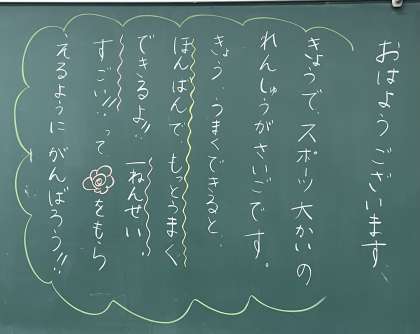 おはようございます。
きょうで、スポーツ大かいの
れんしゅうがさいごです。
きょう、うまくできると、
ほんばんで、もっとうまく
できるよ!! 一ねんせい、
すごい!! って をもら
えるようにがんばろう!!